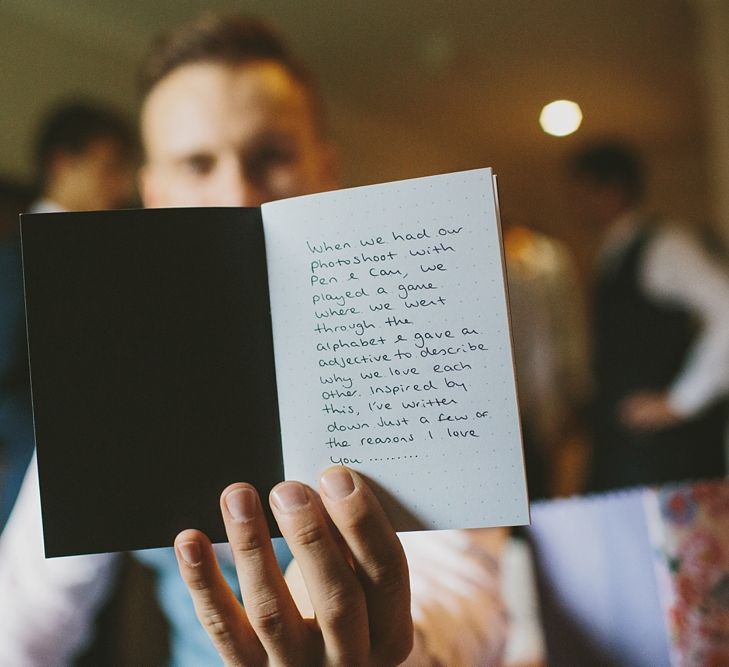 When we had our
photoshoot with
Pen & Cam, we
played a game
where we went
through the
alphabet & gave an
adjective to describe
why we love each
other. Inspired by
this, I've written
down just a few of
the reasons I love
you .........